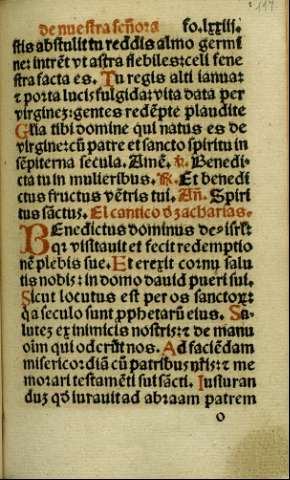 de nuestra señora fo.lxxiis. 117
stis abstulit tu reddis almo germi
ne: intrēt vt astra flebiles: celi fene
stra facta es. Tu regis alti ianua:
⁊ porta lucis fulgida: vita data per
virginez: gentes redēpte plaudite
Glia tibi domine qui natus es de
virgine: cū patre et sancto spiritu in
sēpiterna secula. Amē. ℣. Benedi-
cta tu in mulieribus. ℟. Et benedi
ctus fructus vētris tui. Añ. Spiri
tus sāctus. El cantico đ zacharias.
BEnedictus dominus de⁹ isrl:
qr visitauit et fecit redemptio
nē plebis sue. Et erexit cornu salu
tis nobis: in domo dauid pueri sui.
Sicut locutus est per os sanctoꝝ:
q̄ a seculo sunt ꝓphetarū eius. Sa-
lutez ex inimicis nostris: ⁊ de manu
oīm qui oderūt nos. Ad faciēdam
misericordiā cū patribus nr̄is: ⁊ me
morari testamēti sui sācti. Iusiuran
duz qđ iurauit ad abraam patrem
o